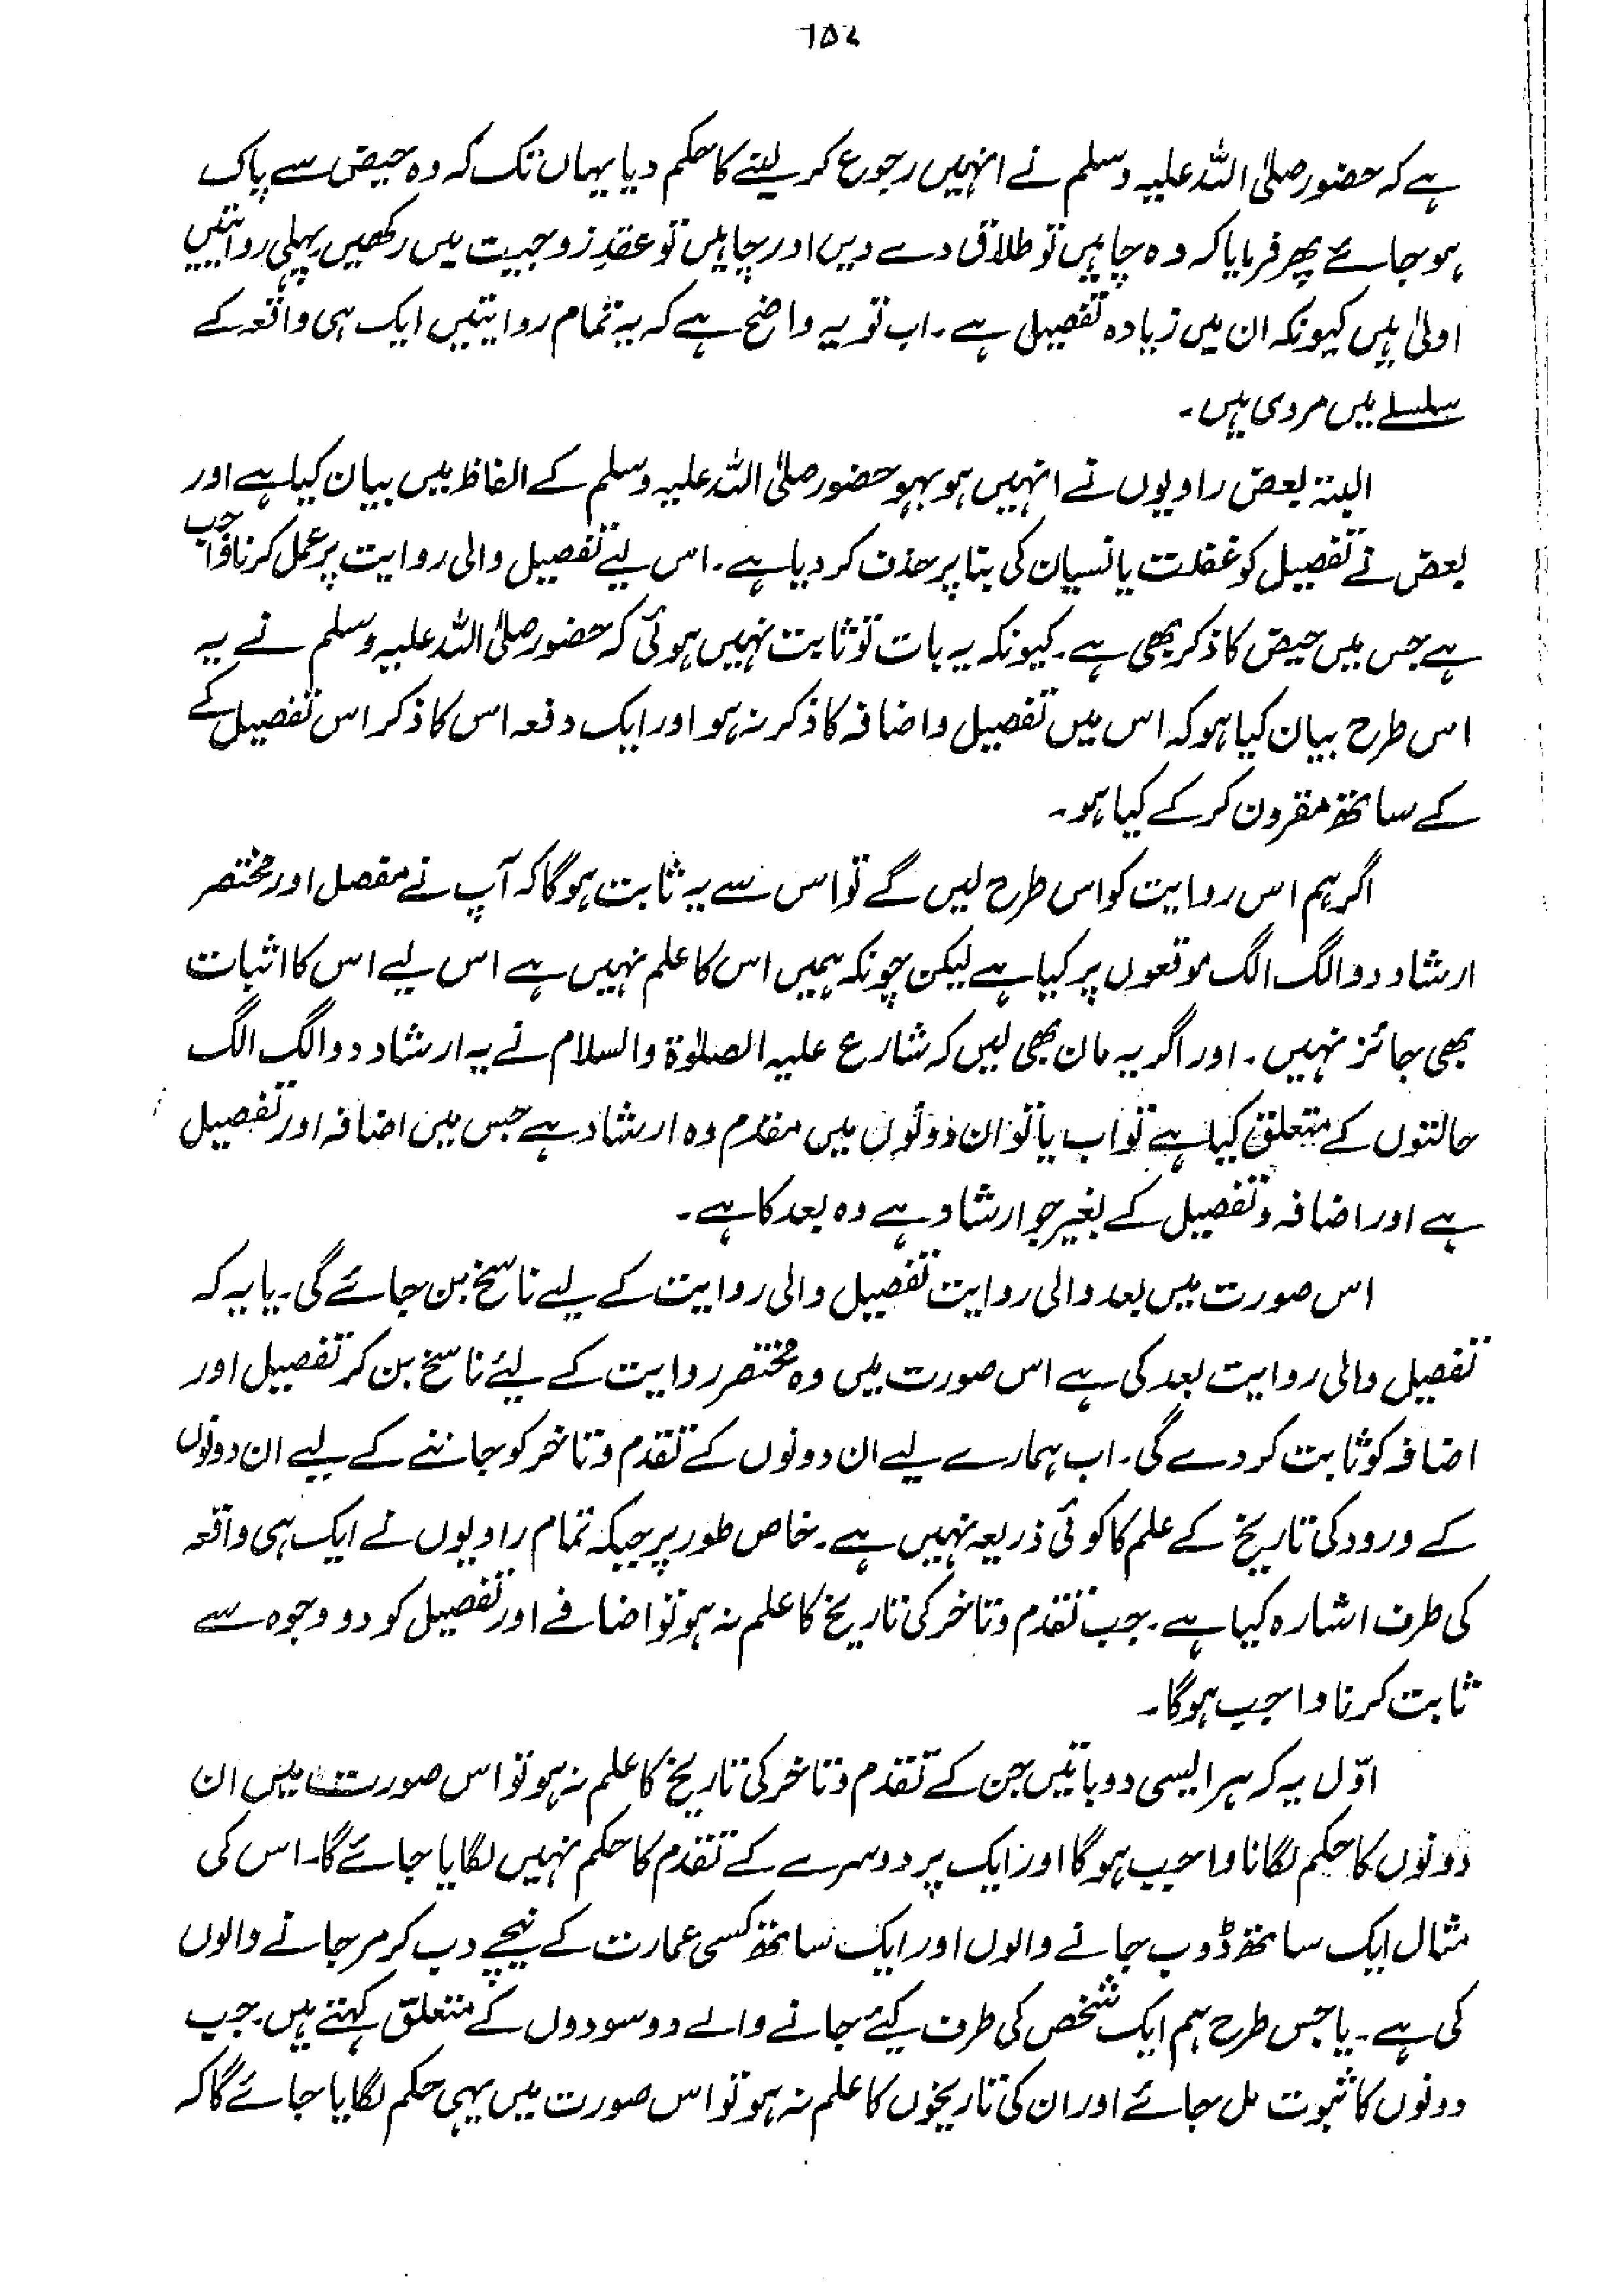 ۶۵۲
ہے کہ حضور صلی اللہ علیہ وسلم نے انہیں رجوع کر لینے کا حکم دیا یہاں تک کہ وہ حیض سے پاک
ہو جائے پھر فرمایا کہ وہ چاہیں تو طلاق دے دیں اور چاہیں تو عقدِ زوجیت میں رکھیں پہلی روایتیں
اولیٰ ہیں کیونکہ ان میں زیادہ تفصیل ہے۔ اب تو یہ واضح ہے کہ یہ تمام روایتیں ایک ہی واقعہ کے
سلسلے میں مروی ہیں۔
البتہ بعض راویوں نے انہیں ہو بہو حضور صلی اللہ علیہ وسلم کے الفاظ میں بیان کیا ہے اور
بعض نے تفصیل کو غفلت یا نسیان کی بنا پر حذف کر دیا ہے۔ اس لیے تفصیل والی روایت پر عمل کرنا واجب
ہے جس میں حیض کا ذکر بھی ہے۔ کیونکہ یہ بات تو ثابت نہیں ہوئی کہ حضور صلی اللہ علیہ وسلم نے یہ
اس طرح بیان کیا ہو کہ اس میں تفصیل و اضافہ کا ذکر نہ ہو اور ایک دفعہ اس کا ذکر اس تفصیل کے
کے ساتھ مقرون کر کے کیا ہو۔
اگر ہم اس روایت کو اس طرح لیں گے تو اس سے یہ ثابت ہوگا کہ آپ نے مفصل اور مختصر
ارشاد دو الگ الگ موقعوں پر کیا ہے لیکن چونکہ ہمیں اس کا علم نہیں ہے اس لیے اس کا اثبات
بھی جائز نہیں۔ اور اگر یہ مان بھی لیں کہ شارع علیہ الصلوٰۃ والسلام نے یہ ارشاد دو الگ الگ
حالتوں کے متعلق کیا ہے تو اب یا تو ان دونوں میں مقدم وہ ارشاد ہے جس میں اضافہ اور تفصیل
ہے اور اضافہ و تفصیل کے بغیر جو ارشاد ہے وہ بعد کا ہے۔
اس صورت میں بعد والی روایت تفصیل والی روایت کے لیے ناسخ بن جائے گی۔ یا یہ کہ
تفصیل والی روایت بعد کی ہے اس صورت میں وہ مختصر روایت کے لیئے ناسخ بن کر تفصیل اور
اضافہ کو ثابت کر دے گی۔ اب ہمارے لیے ان دونوں کے تقدم و تاخر کو جاننے کے لیے ان دونوں
کے ورود کی تاریخ کے علم کا کوئی ذریعہ نہیں ہے۔ خاص طور پر جبکہ تمام راویوں نے ایک ہی واقعہ
کی طرف اشارہ کیا ہے۔ جب تقدم و تاخر کی تاریخ کا علم نہ ہو تو اضافے اور تفصیل کو دو وجوہ سے
ثابت کرنا واجب ہوگا۔
اوّل یہ کہ ہر ایسی دو باتیں جن کے تقدم و تاخر کی تاریخ کا علم نہ ہو تو اس صورت میں ان
دونوں کا حکم لگانا واجب ہوگا اور ایک پر دوسرے کے تقدم کا حکم نہیں لگایا جائے گا۔ اس کی
مثال ایک ساتھ ڈوب جانے والوں اور ایک ساتھ کسی عمارت کے نیچے دب کر مر جانے والوں
کی ہے۔ یا جس طرح ہم ایک شخص کی طرف کیئے جانے والے دو سودوں کے متعلّق کہتے ہیں۔ جب
دونوں کا ثبوت مل جائے اور ان کی تاریخوں کا علم نہ ہو تو اس صورت میں یہی حکم لگایا جائے گا کہ